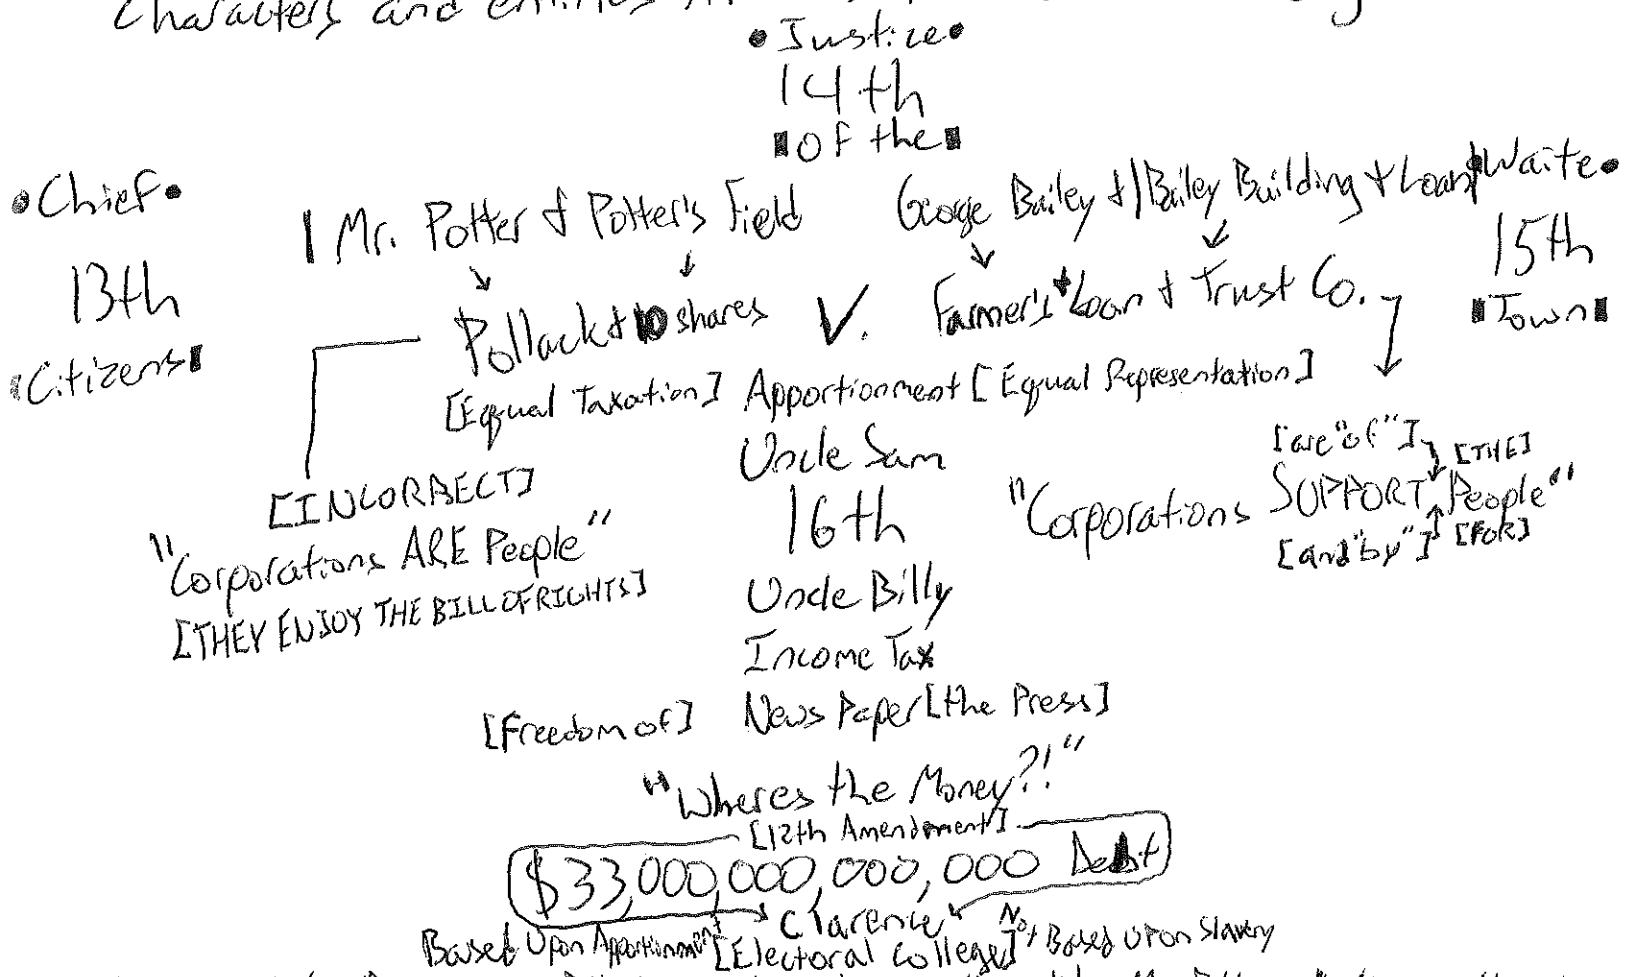 Characters and entities
•Justice•
14th
▮of the▮
•Chief•
13th
▮Citizens▮
| Mr. Potter & Potter's Field
George Bailey & | Bailey Building & Loan |
•Waite•
15th
▮Town▮
Pollack & 10 shares V. Farmer's & Loan & Trust Co.
[Equal Taxation] Apportionment [Equal Representation]
Uncle Sam
16th
Uncle Billy
Income Tax
[Freedom of] News Paper [the Press]
[INCORRECT]
"Corporations ARE People"
[THEY ENJOY THE BILL OF RIGHTS]
[are "of"] [THE]
"Corporations SUPPORT People"
[and "by"] [FOR]
"Wheres the Money?!"
[12th Amendment]
$33,000,000,000,000 Debt
Clarence
Based Upon Apportionment [Electoral College] Not Based Upon Slavery